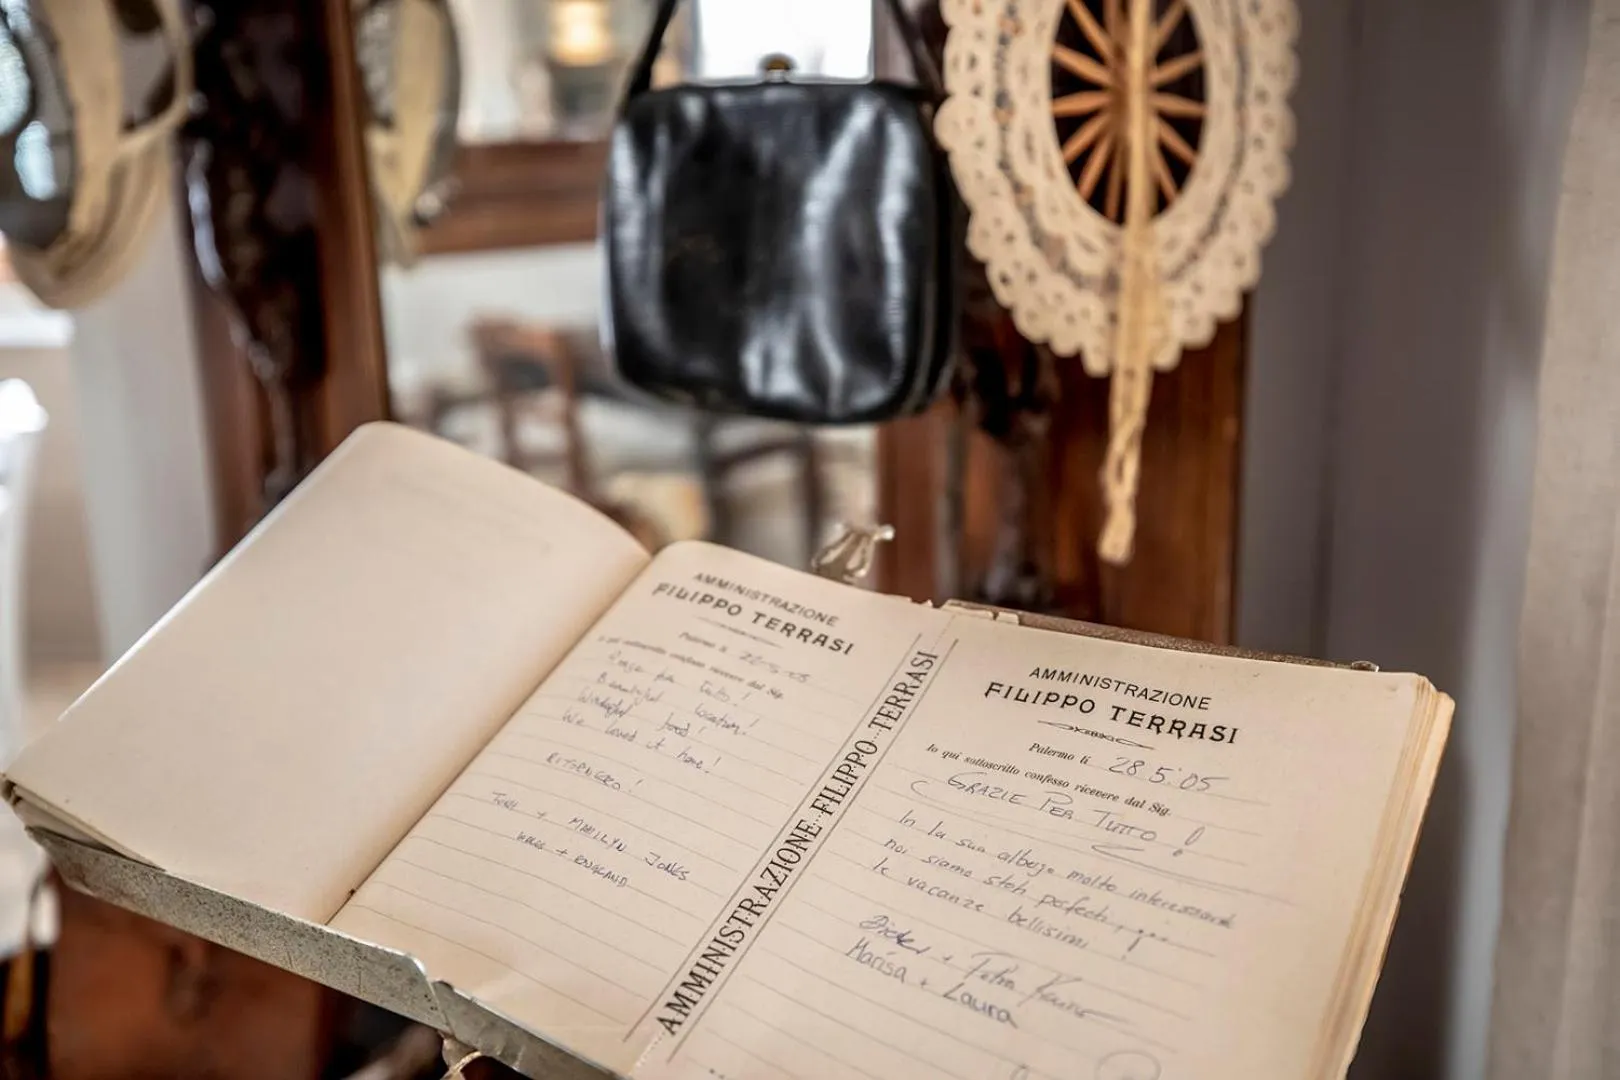 AMMINISTRAZIONE
FILIPPO TERRASI
Palermo li
o qui sottoscritto confesso ricevere dal Sig.
per tutto!
Beautiful location!
Wonderful food!
We loved it here!
RITORNERO!
+ MARILLYN JONES
WALES + ENGLAND
AMMINISTRAZIONE FILIPPO TERRASI
AMMINISTRAZIONE
FILIPPO TERRASI
Palermo li 28.5.'05
Io qui sottoscritto confesso ricevere dal Sig.
GRAZIE PER TUTTO!
In la sua albergo molto interessante
noi siamo stati perfecti, ...
le vacanze bellisimi!
Dieter + Petra
Marisa + Laura